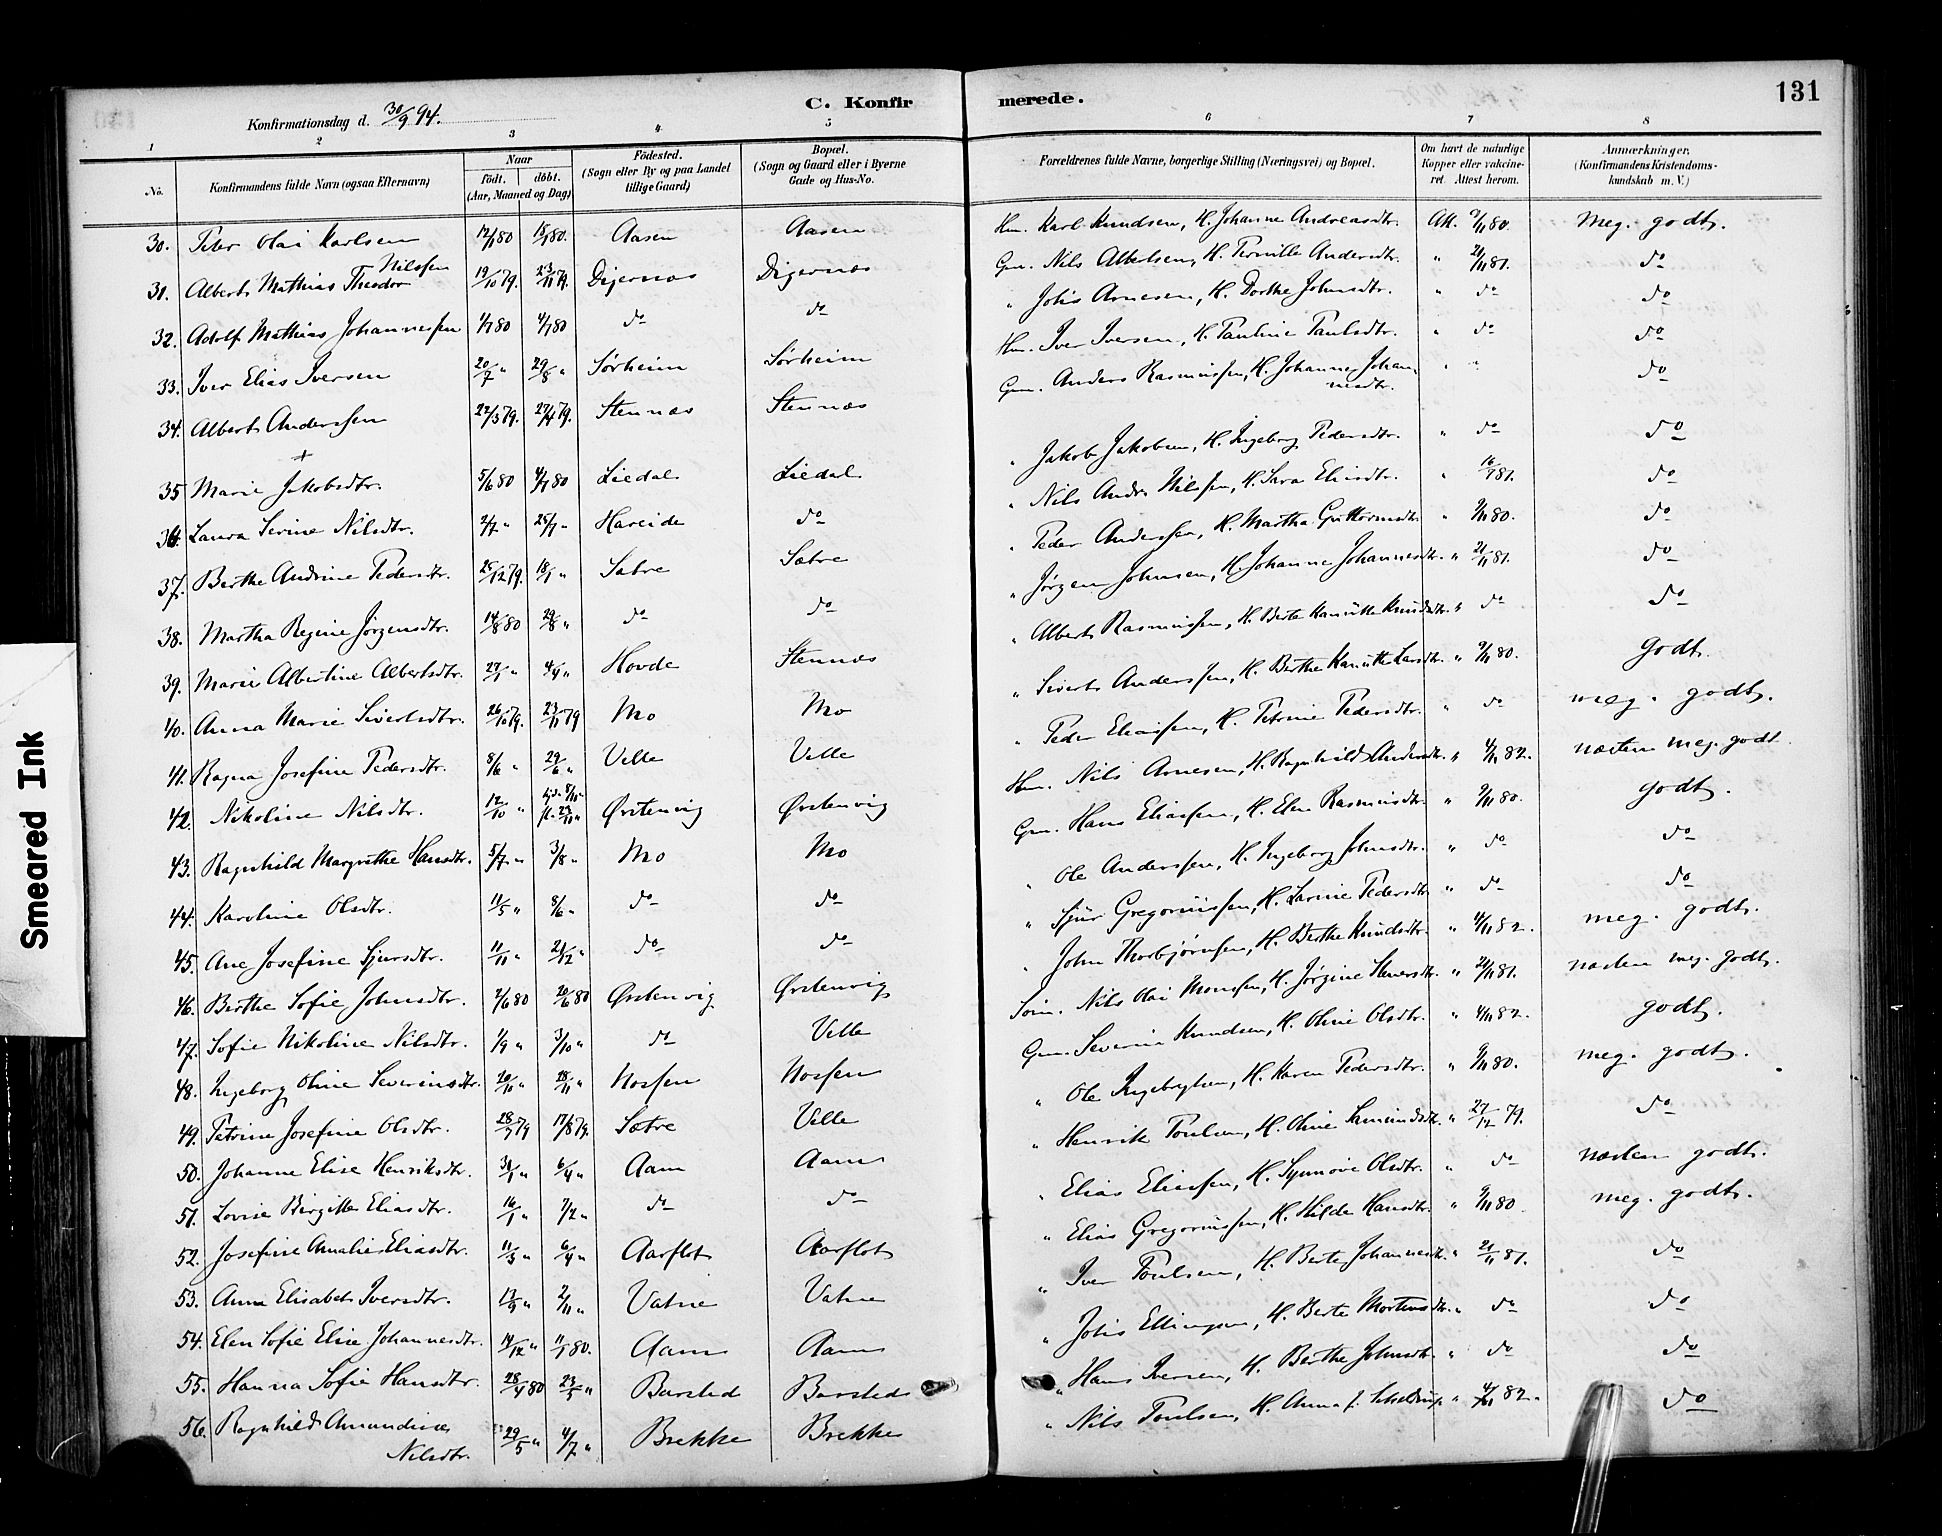 C. Konfirmerede.
131
Konfirmationsdag d. 30/9 94.
1 2 3 4 5 6 7 8
No. Konfirmandens fulde Navn (ogsaa Efternavn) Naar födt. döbt. (Aar, Maaned og Dag) Födested. (Sogn eller By og paa Landet tillige Gaard) Bopæl. (Sogn og Gaard eller i Byerne Gade og Hus-No. Forældrenes fulde Navne, borgerlige Stilling (Næringsvei) og Bopæl. Om havt de naturlige Kopper eller vakcineret. Attest herom. Anmærkninger, (Konfirmandens Kristendomskundskab m. V.)
30. Peter Olai Karlsen 12/1 80 18/1 80. Aasen Aasen Hm. Karl Knudsen, H. Johanne Andreasdtr. Att. 9/11 80. Meg. godt.
31. Albert Mathias Theodor Nilssen 19/10 79. 23/11 79. Digernæs Digernæs Gm. Nils Albertsen, H. Pernille Andersdtr. " 21/11 81. do
32. Adolf Mathias Johannessen 1/1 80 4/1 80 do do " Johs Arnesen, H. Dorthe Johnsdtr. " do do
33. Iver Elias Iversen 20/7 " 29/8 " Sørheim Sørheim Hm. Iver Iversen, H. Pauline Paulsdtr. " do do
34. Albert Anderssen 22/3 79. 27/4 79. Stennæs Stennæs Gm. Anders Rasmussen, H. Johanne Johannesdtr. " " do
+
35 Marie Jakobsdtr. 5/6 80 4/7 80 Liedal Liedal " Jakob Jakobsen, H. Ingeborg Pedersdtr. " do do
36. Laura Serine Nilsdtr. 2/7 " 25/7 " Hareide do " Nils Andr. Nilssen, H. Sara Eliasdtr. " 16/7 81. do
37. Berthe Andrine Pedersdtr. 25/12 79. 18/1 " Sætre Sætre " Peder Anderssen, H. Martha Guttormsdtr. " 9/11 80. do
38. Martha Regine Jørgensdtr. 14/8 80 29/8 " do do " Jørgen Johnsen, H. Johanne Johannesdtr. " 21/11 81. do
39. Marie Albertine Albertsdtr. 27/1 " 4/4 " Hovde Stennæs " Albert Rasmussen, H. Berte Kanutte Knudsdtr. " do do
40. Anna Marie Sivertsdtr. 26/10 79. 23/11 79 Mo Mo " Sivert Anderssen, H. Berthe Kanutte Larsdtr. " 9/11 80. Godt.
41. Ragna Josefine Pedersdtr. 8/6 " 29/6 " Velle Velle " Peder Eliassen, H. Petrine Pedersdtr. " do meg. godt.
42. Nikoline Nilsdtr. 12/10 " Ørstenvig Ørstenvig Hm. Nils Arnesen, H. Ragnhild Andersdtr. " 4/11 82. næsten meg. godt.
43. Ragnhild Margrethe Hansdtr. 5/7 " 3/8 " Mo Mo Gm. Hans Eliassen, H. Elen Rasmusdtr. " 9/11 80. godt.
44. Karoline Olsdtr. 11/5 " 8/6 " do do " Ole Anderssen, H. Ingeborg Johnsdtr. " do do
45. Ane Josefine Sjursdtr. 11/11 " 21/12 " do do " Sjur Gregoriussen, H. Larine Pedersdtr. " do do
46. Berthe Sofie Johnsdtr. 2/6 80 20/6 80 Ørstenvig Ørstenvig " John Thorbjørnsen, H. Berthe Knudsdtr. " 4/11 82. meg. godt.
47. Sofie Nikoline Nilsdtr. 1/9 " 3/10 " do Velle Nils Olai Monssen, H. Jørgine " 21/11 81. næsten meg. godt.
48. Ingeborg Oline Severinsdtr. 20/10 " 28/11 " Nossen Nossen Gm. Severin Knudsen, H. Oline Olsdtr. " 4/11 82. godt.
49. Petrine Josefine Olsdtr. 28/7 79 17/8 79. Sætre Velle " Ole Ingebrigtsen, H. Karen Pedersdtr. " 9/11 80. meg. godt.
50. Johanne Elise Henriksdtr. 31/1 " 6/4 " Aam Aam " Henrik Poulsen, H. Oline " 27/12 79. do
51. Lovise Birgitte Eliasdtr. 16/1 " 7/2 " do do " Elias Eliassen, H. Synnøve Olsdtr. " do næsten godt.
52. Josefine Amalie Eliasdtr. 11/3 " 6/4 " Aarflot Aarflot " Elias Gregoriussen, H. Hilde Hansdtr. " 9/11 80. meg. godt.
53. Anna Elisabet Iversdtr. 13/9 " 2/11 " Vatne Vatne " Iver Poulsen, H. Berte Johannesdtr. " 21/11 81. do
54. Elen Sofie Elise Johannesdtr. 14/12 " 11/1 80. Aam Aam " Johs Ellingsen, H. Berte Mortensdtr. " do do
55. Hanna Sofie Hansdtr. 28/4 80 23/5 " Barsted Barsted " Hans Iversen, H. Berthe Johnsdtr. " do do
56. Ragnhild Amundine Nilsdtr. 29/5 " 4/7 " Brekke Brekke " Nils Poulsen, H. Anna f. " 4/11 82. do
Smeared Ink